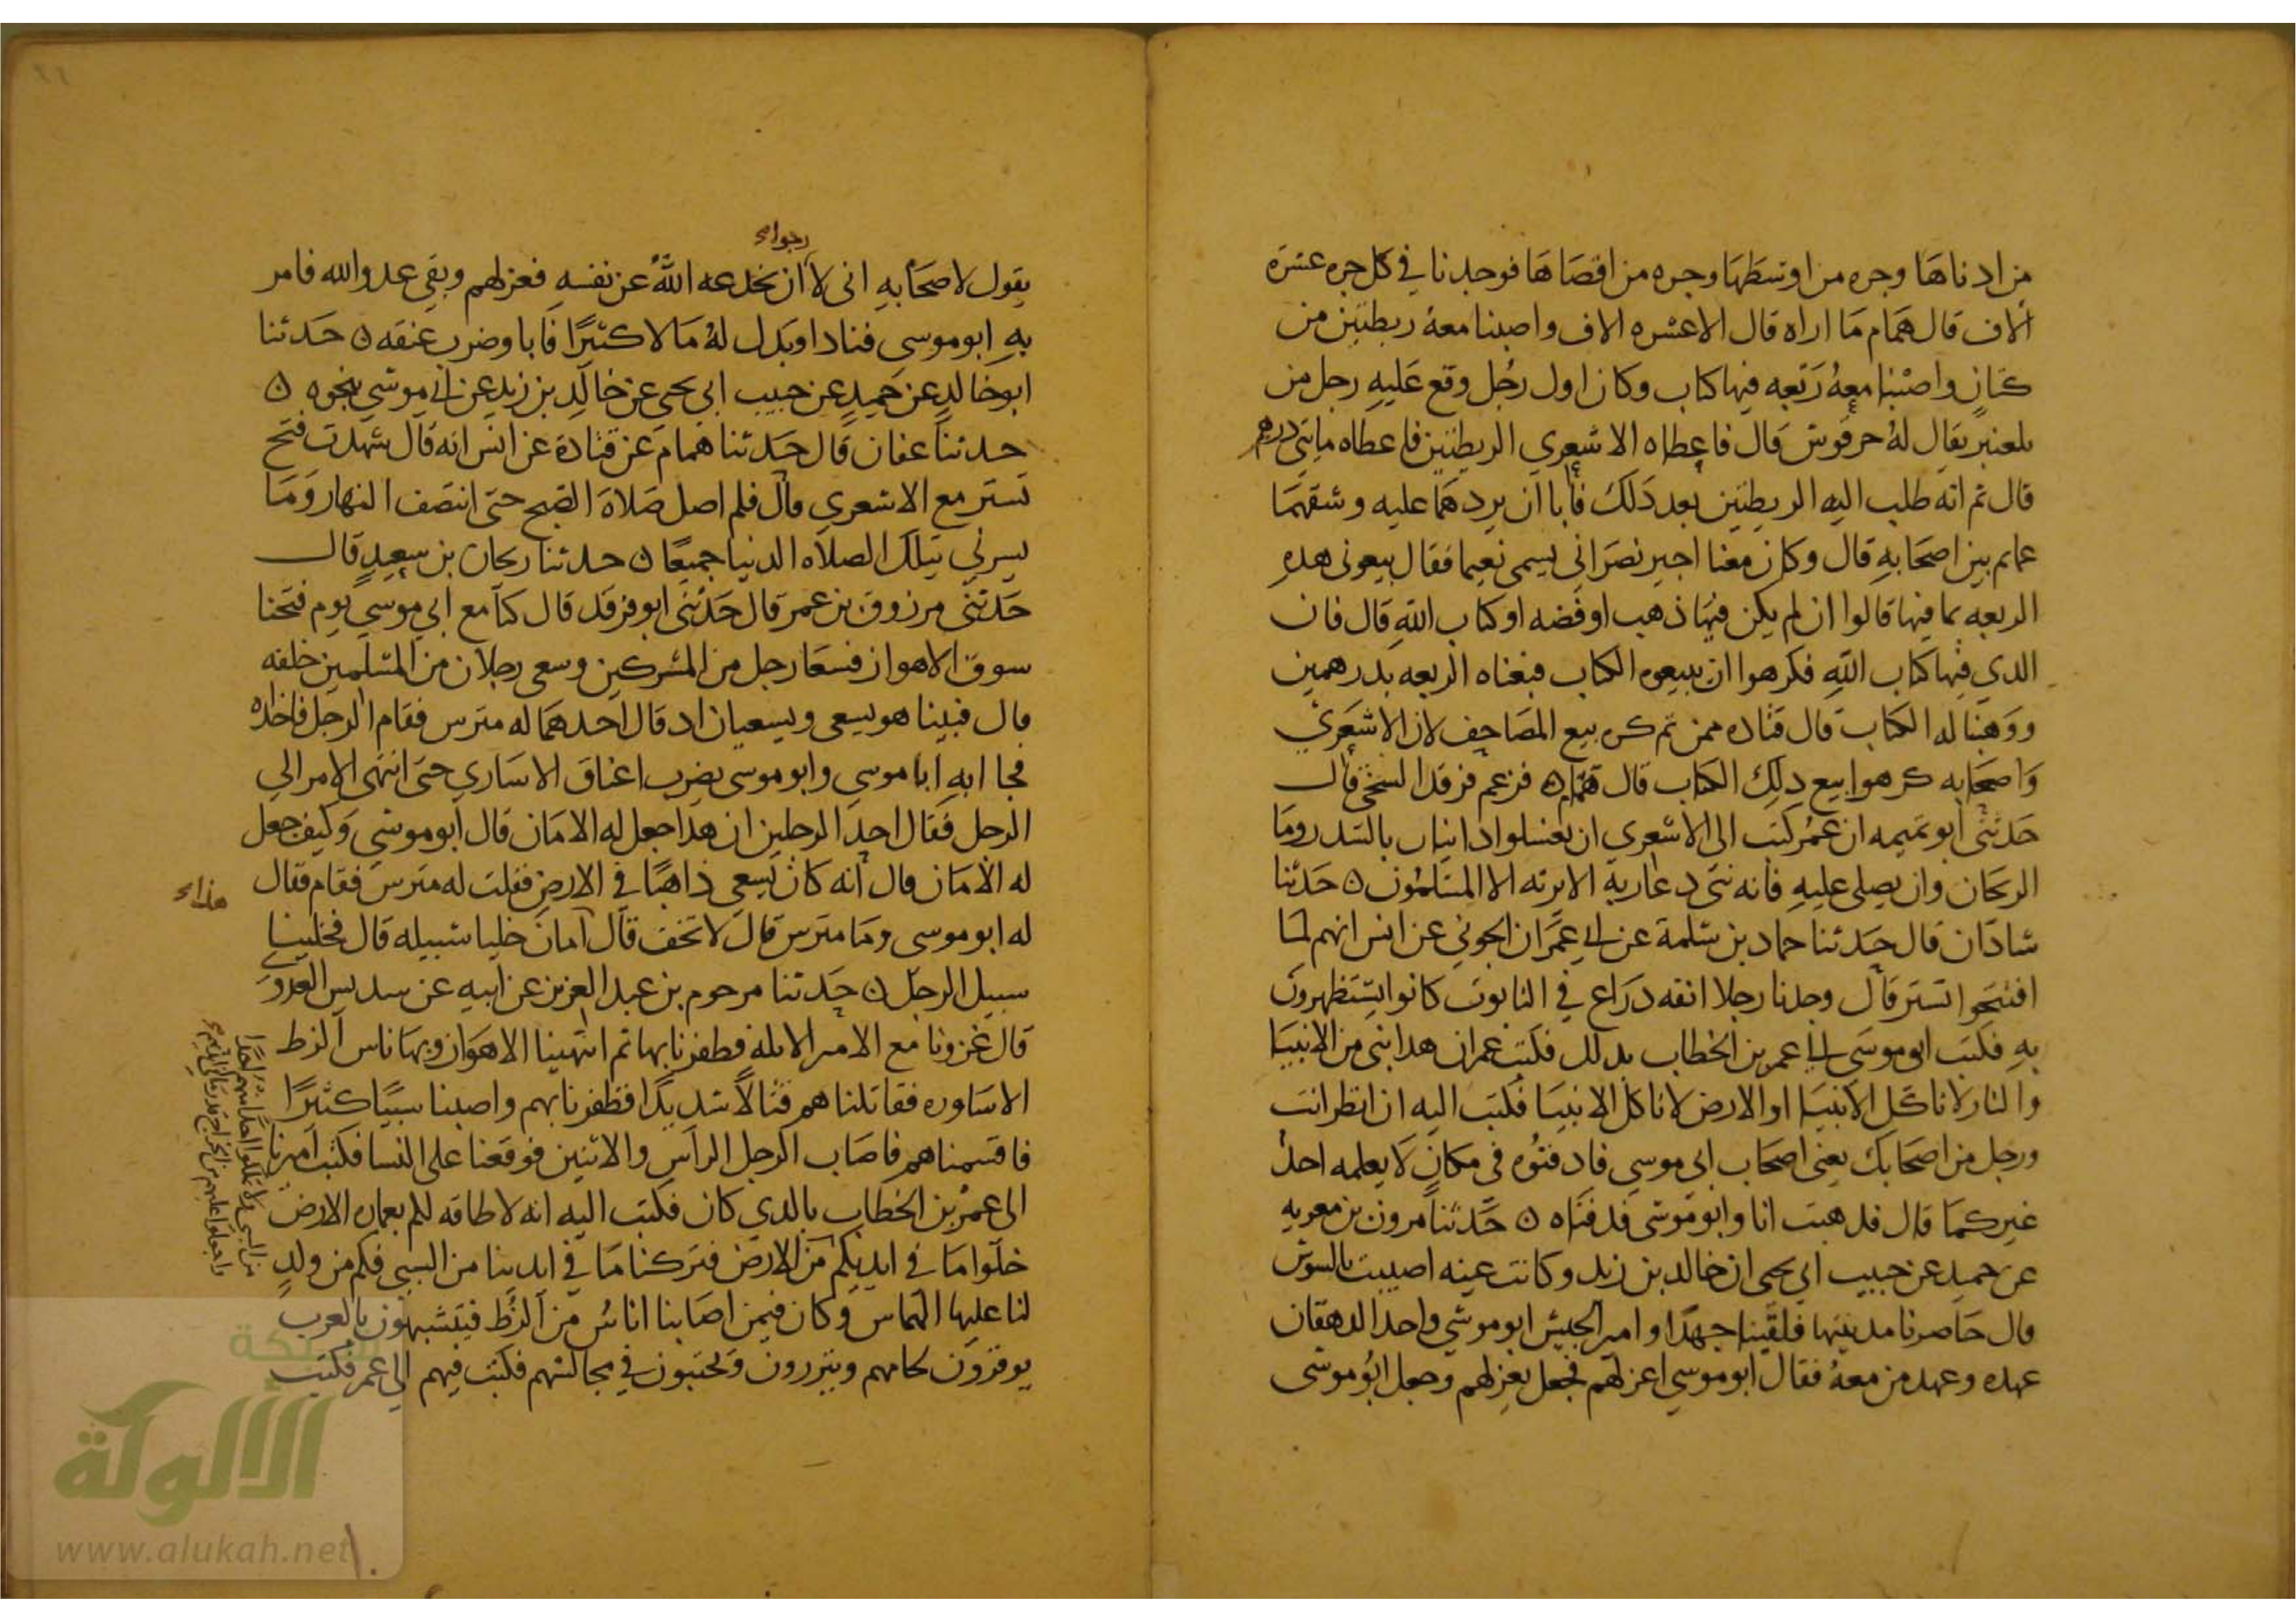 من ادناها وجره من اوسطها وجره من اقصاها فوجدنا في كل جره عشرة
الاف قال همام ما اراه قال الا عشره الاف واصبنا معه ريطتين من
كتان واصبنا معه ربعه فيها كتاب وكان اول رجل وقع عليه رجل من
بلعنبر يقال له حرقوش قال فاعطاه الاشعري الريطتين فاعطاه مايتي درهم
قال ثم انه طلب اليه الريطتين بعد ذلك فابا ان يردهما عليه وشقهما
عمايم بين اصحابه قال وكان معنا اجير نصراني يسمى نعيما فقال بيعوني هذه
الربعه بما فيها قالوا ان لم يكن فيها ذهب او فضه او كتاب الله قال فان
الذي فيها كتاب الله فكرهوا ان يبيعوه الكتاب فبعناه الربعه بدرهمين
ووهبنا له الكتاب قال قتاده فمن ثم كره بيع المصاحف لان الاشعري
واصحابه كرهوا بيع ذلك الكتاب قال همام فزعم فرقد السبخي قال
حدثني ابو تميمه ان عمر كتب الى الاشعري ان يغسلوا دانيال بالسدر وما
الريحان وان يصلى عليه فانه نبي دعا ربه الا يرثه الا المسلمون ن حدثنا
شاذان قال حدثنا حماد بن سلمة عن ابي عمران الجوني عن انس انهم لما
افتتحوا تستر قال وجدنا رجلا انفه ذراع في التابوت كانوا يستظهرون
به فكتب ابو موسى الى عمر بن الخطاب بذلك فكتب عمر ان هذا نبي من الانبيا
والنار لا تاكل الانبيا او الارض لا تاكل الانبيا فكتب اليه ان انظر انت
ورجل من اصحابك يعني اصحاب ابي موسى فادفنوه في مكان لا يعلمه احد
غيركما قال فذهبت انا وابو موسى فدفناه ن حدثنا مرون بن معويه
عن حميد عن حبيب ابي يحيى ان خالد بن زيد وكانت عينه اصيبت بالسوس
قال حاصرنا مدينتها فلقينا جهدا وامير الجيش ابو موسى واخذ الدهقان
عهده وعهد من معه فقال ابو موسى اعزلهم فجعل يعزلهم وجعل ابو موسى
رجواء
يقول لاصحابه اني لا ان يخدعه الله عن نفسه فعزلهم وبقي عدو الله فامر
به ابو موسى فنادا وبذل له مالا كثيرا فابا وضرب عنقه ن حدثنا
ابو خالد عن حميد عن حبيب ابي يحيى عن خالد بن زيد عن ابي موسى بنحوه ن
حدثنا عفان قال حدثنا همام عن قتادة عن انس انه قال شهدت فتح
تستر مع الاشعري قال فلم اصل صلاة الصبح حتى انتصف النهار وما
يسرني بتلك الصلاه الدنيا جميعا ن حدثنا ريحان بن سعيد قال
حدثني مرزوق بن عمر قال حدثني ابو فرقد قال كنا مع ابي موسى يوم فتحنا
سوق الاهواز فسعا رجل من المشركين وسعى رجلان من المسلمين خلفه
قال فبينا هو يسعى ويسعيان اد قال احدهما له مترس فقام الرجل فاخذاه
فجاا به ابا موسى وابو موسى يضرب اعناق الاسارى حتى انتهى الامر الى
الرجل فقال احد الرجلين ان هذا جعل له الامان قال ابو موسى وكيف جعل
له الامان قال انه كان يسعى ذاهبا في الارض فقلت له مترس فقام فقال
هذاء
له ابو موسى وما مترس قال لا تخف قال امان خليا سبيله قال فخلينا
سبيل الرجل ن حدثنا مرحوم بن عبد العزيز عن ابيه عن سديس العدوي
قال غزونا مع الامير الابله فظفرنا بها ثم انتهينا الاهواز وبها ناس الزط
الاساوره فقاتلناهم قتالا شديدا فظفرنا بهم واصبنا سبيا كثيرا
فاقتسمناهم فاصاب الرجل الراس والاثنين فوقعنا على النسا فكتب اميرنا
الى عمر بن الخطاب بالذي كان فكتب اليه انه لا طاقه لكم بعماره الارض
خلوا ما في ايديكم من
من السبي ولا تملكوا احدا منهم احدا
واجعلوا عليهم من الخراج قدر ما في ايديهم
الارض فتركنا ما في ايدينا من السبي فكم من ولد
لنا عليها الهماس وكان فيمن اصابنا اناس من الزط فيتشبهون بالعرب
يوفرون لحاهم وييتزرون ويحتبون في مجالسهم فكتب فيهم الى عمر فكتب
شبكة
الألوكة
www.alukah.net